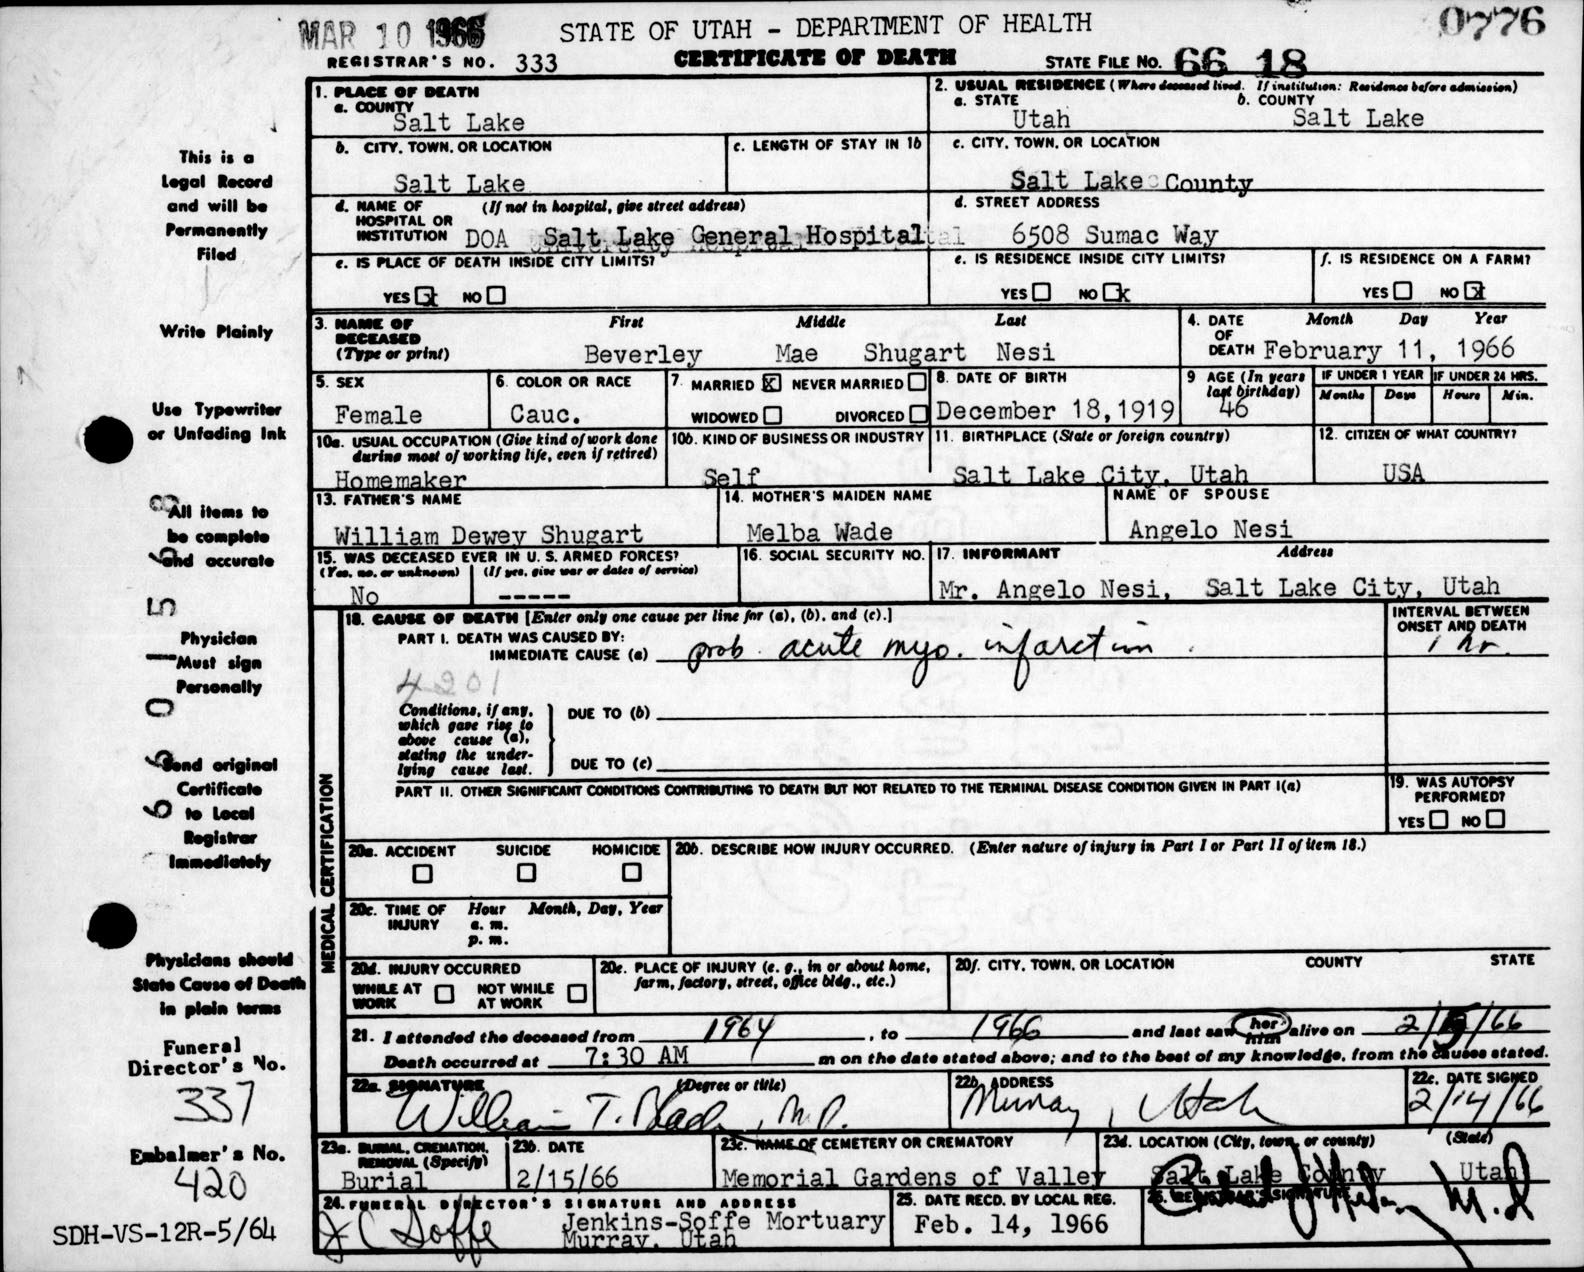 MAR 10 1966
STATE OF UTAH - DEPARTMENT OF HEALTH
0776
REGISTRAR'S NO. 333
CERTIFICATE OF DEATH
STATE FILE NO. 66 18
This is a
Legal Record
and will be
Permanently
Filed
Write Plainly
Use Typewriter
or Unfading Ink
All items to
be complete
and accurate
Physician
Must sign
Personally
Send original
Certificate
to Local
Registrar
Immediately
Physicians should
State Cause of Death
in plain terms
Funeral
Director's No.
337
Embalmer's No.
420
SDH-VS-12R-5/64
1. PLACE OF DEATH
a. COUNTY
Salt Lake
2. USUAL RESIDENCE (Where deceased lived. If institution: Residence before admission)
a. STATE
b. COUNTY
Utah
Salt Lake
b. CITY, TOWN, OR LOCATION
Salt Lake
c. LENGTH OF STAY IN 1b
c. CITY, TOWN, OR LOCATION
Salt Lake County
d. NAME OF (If not in hospital, give street address)
HOSPITAL OR
INSTITUTION DOA Salt Lake General Hospital
d. STREET ADDRESS
6508 Sumac Way
e. IS PLACE OF DEATH INSIDE CITY LIMITS?
YES x NO
e. IS RESIDENCE INSIDE CITY LIMITS?
YES NO x
f. IS RESIDENCE ON A FARM?
YES NO x
3. NAME OF First Middle Last
DECEASED
(Type or print) Beverley Mae Shugart Nesi
4. DATE Month Day Year
OF
DEATH February 11, 1966
5. SEX
Female
6. COLOR OR RACE
Cauc.
7. MARRIED x NEVER MARRIED
WIDOWED DIVORCED
8. DATE OF BIRTH
December 18, 1919
9 AGE (In years
last birthday)
46
IF UNDER 1 YEAR
Months Days
IF UNDER 24 HRS.
Hours Min.
10a. USUAL OCCUPATION (Give kind of work done
during most of working life, even if retired)
Homemaker
10b. KIND OF BUSINESS OR INDUSTRY
Self
11. BIRTHPLACE (State or foreign country)
Salt Lake City, Utah
12. CITIZEN OF WHAT COUNTRY?
USA
13. FATHER'S NAME
William Dewey Shugart
14. MOTHER'S MAIDEN NAME
Melba Wade
NAME OF SPOUSE
Angelo Nesi
15. WAS DECEASED EVER IN U. S. ARMED FORCES?
(Yes, no, or unknown) (If yes, give war or dates of service)
No -----
16. SOCIAL SECURITY NO.
17. INFORMANT Address
Mr. Angelo Nesi, Salt Lake City, Utah
MEDICAL CERTIFICATION
18. CAUSE OF DEATH [Enter only one cause per line for (a), (b), and (c).]
PART I. DEATH WAS CAUSED BY:
IMMEDIATE CAUSE (a) prob. acute myo. infarction
INTERVAL BETWEEN
ONSET AND DEATH
1 hr.
4201
Conditions, if any,
which gave rise to
above cause (a),
stating the under-
lying cause last.
DUE TO (b)
DUE TO (c)
PART II. OTHER SIGNIFICANT CONDITIONS CONTRIBUTING TO DEATH BUT NOT RELATED TO THE TERMINAL DISEASE CONDITION GIVEN IN PART I(a)
19. WAS AUTOPSY
PERFORMED?
YES NO
20a. ACCIDENT SUICIDE HOMICIDE
20b. DESCRIBE HOW INJURY OCCURRED. (Enter nature of injury in Part I or Part II of item 18.)
20c. TIME OF Hour Month, Day, Year
INJURY a. m.
p. m.
20d. INJURY OCCURRED
WHILE AT NOT WHILE
WORK AT WORK
20e. PLACE OF INJURY (e. g., in or about home,
farm, factory, street, office bldg., etc.)
20f. CITY, TOWN, OR LOCATION COUNTY STATE
21. I attended the deceased from 1964, to 1966 and last saw her him alive on 2/5/66
Death occurred at 7:30 AM m on the date stated above; and to the best of my knowledge, from the causes stated.
22a. SIGNATURE (Degree or title)
William T. Black, M.D.
22b. ADDRESS
Murray, Utah
22c. DATE SIGNED
2/14/66
23a. BURIAL, CREMATION,
REMOVAL (Specify)
Burial
23b. DATE
2/15/66
23c. NAME OF CEMETERY OR CREMATORY
Memorial Gardens of Valley
23d. LOCATION (City, town, or county) (State)
Salt Lake County Utah
24. FUNERAL DIRECTOR'S SIGNATURE AND ADDRESS
J C Soffe Jenkins-Soffe Mortuary
Murray, Utah
25. DATE RECD. BY LOCAL REG.
Feb. 14, 1966
26. REGISTRAR'S SIGNATURE
M.D